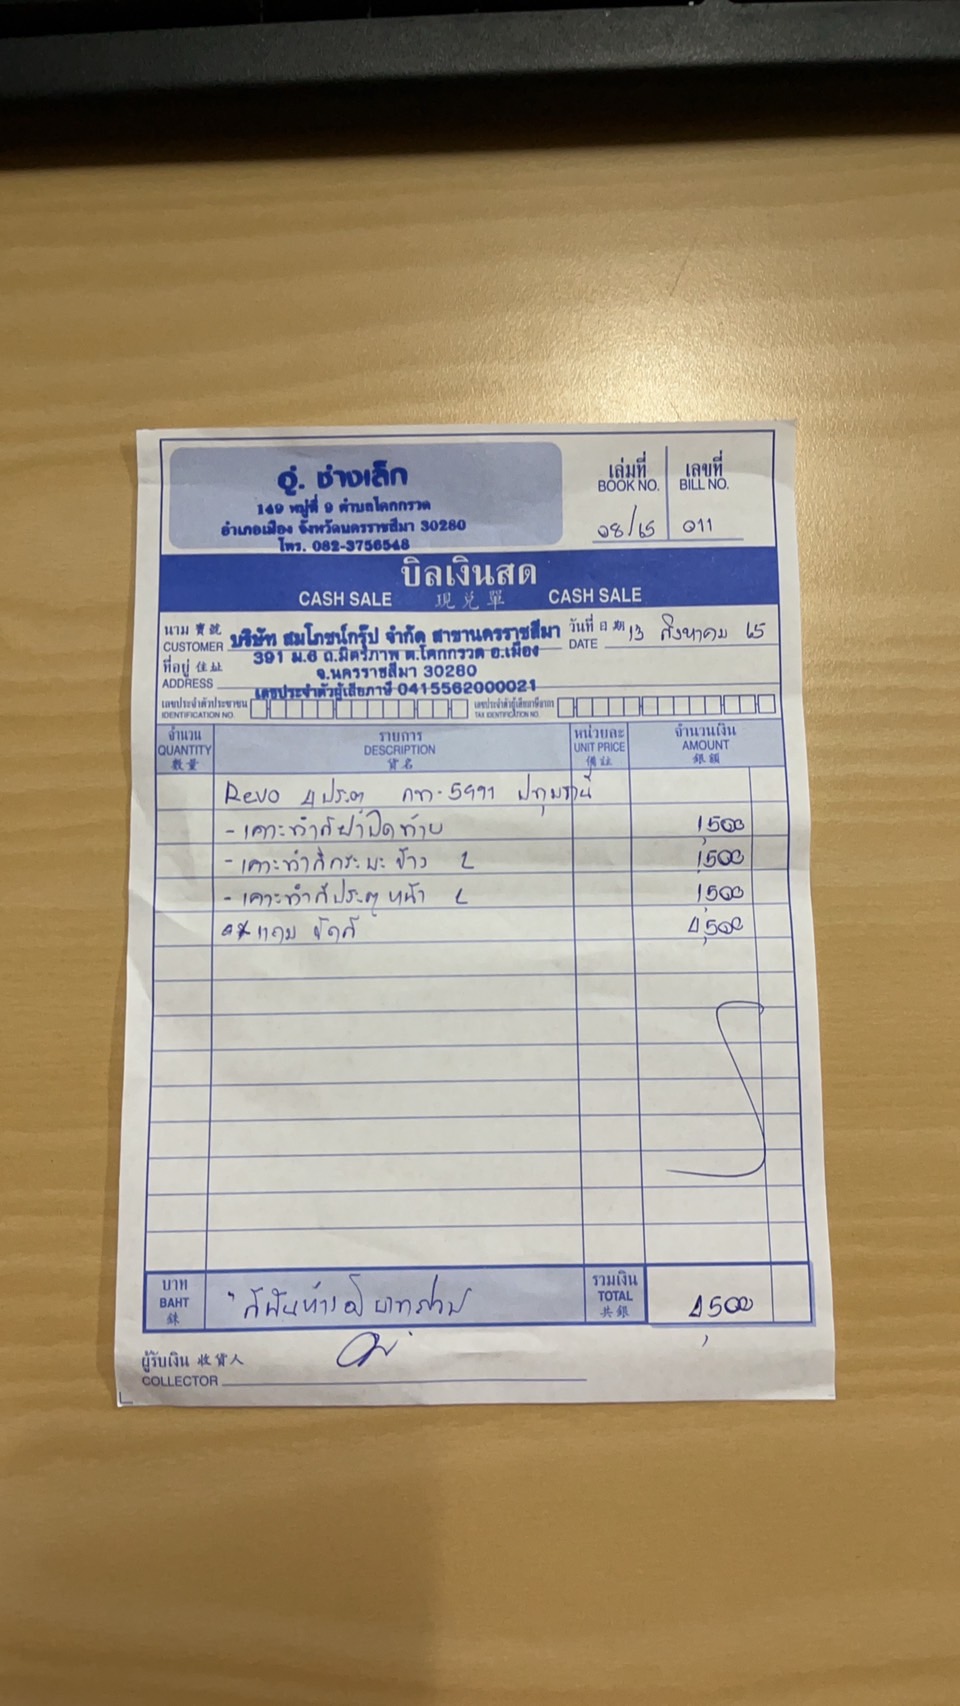 อู่. ช่างเล็ก
149 หมู่ที่ 9 ตำบลโคกกรวด
อำเภอเมือง จังหวัดนครราชสีมา 30280
โทร. 082-3756548
เล่มที่ เลขที่
BOOK NO. BILL NO.
08/65 011
บิลเงินสด
CASH SALE 現兌單 CASH SALE
นาม 寶號 CUSTOMER บริษัท สมโภชน์กรุ๊ป จำกัด สาขานครราชสีมา
วันที่ 日期 DATE 13 สิงหาคม 65
391 ม.6 ถ.มิตรภาพ ต.โคกกรวด อ.เมือง
ที่อยู่ 住址 ADDRESS จ.นครราชสีมา 30280
เลขประจำตัวผู้เสียภาษี 0415562000021
เลขประจำตัวประชาชน เลขประจำตัวผู้เสียภาษีอากร
IDENTIFICATION NO. TAX IDENTIFICATION NO.
จำนวน รายการ หน่วยละ จำนวนเงิน
QUANTITY DESCRIPTION UNIT PRICE AMOUNT
數量 貨名 價註 銀額
Revo 4 ประตู กท-5991 ปทุมธานี
- เคาะทำสีฝาปิดท้าย 1,500
- เคาะทำสีกระบะข้าง L 1,500
- เคาะทำสีประตูหน้า L 1,500
แถม ขัดสี 4,500
บาท รวมเงิน
BAHT สี่พันห้าร้อยบาทถ้วน TOTAL 4,500
銖 共銀
ผู้รับเงิน 收貨人
COLLECTOR